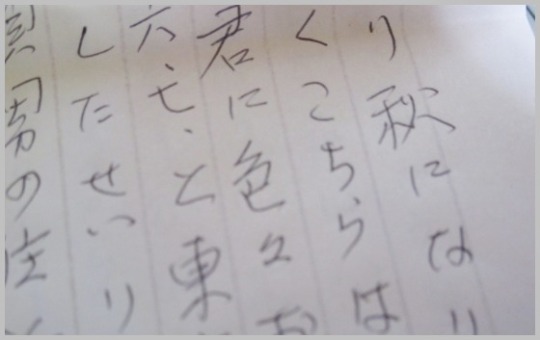 り秋になり
くこちらは
君に色々お
六、七、と東
したせいり
の